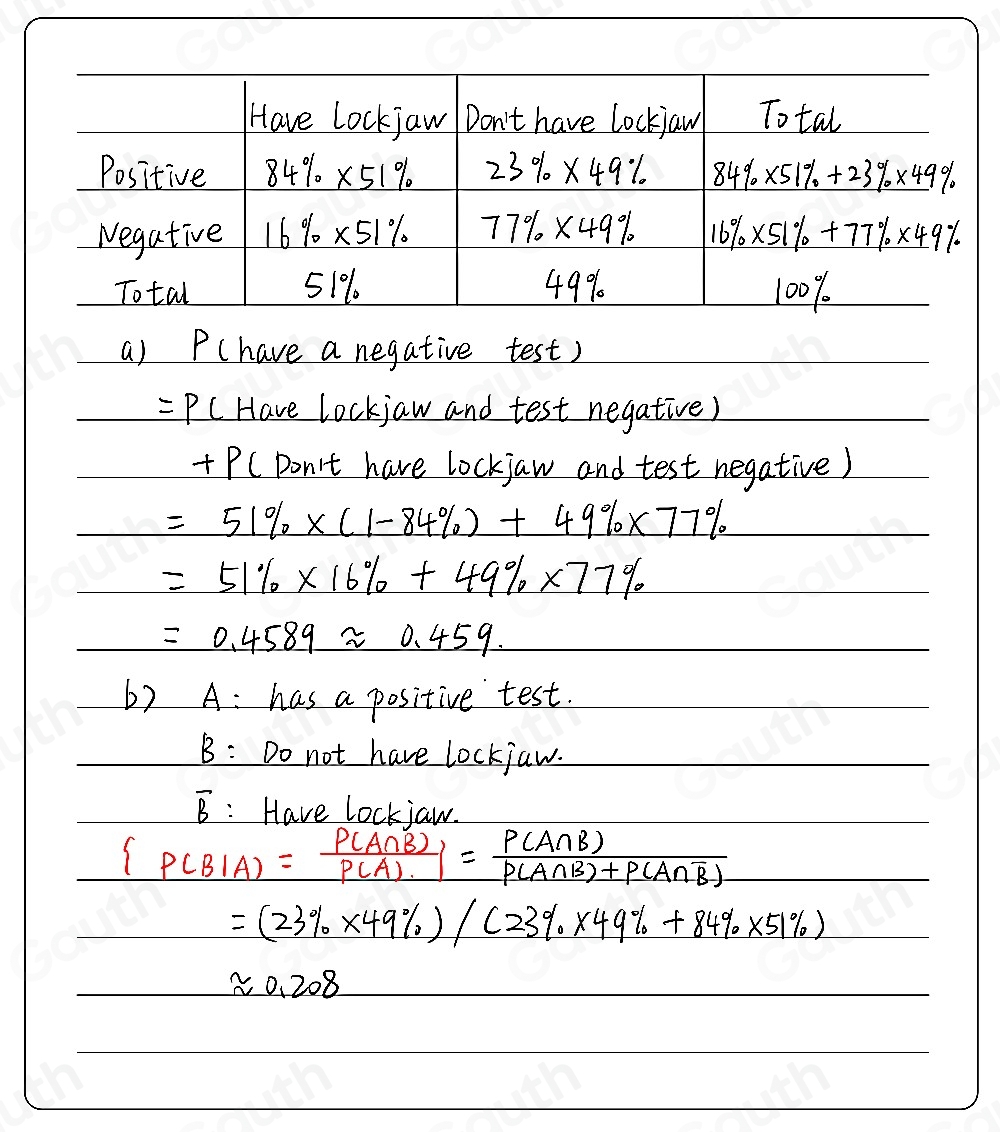 Have lockjaw Don't have lockjaw Total
Positive 84% × 51% 23% × 49% 84% × 51% + 23% × 49%
Negative 16% × 51% 77% × 49% 16% × 51% + 77% × 49%
Total 51% 49% 100%
a) P(have a negative test)
= P(Have lockjaw and test negative)
+ P(Don't have lockjaw and test negative)
= 51% × (1-84%) + 49% × 77%
= 51% × 16% + 49% × 77%
= 0.4589 ≈ 0.459.
b) A: has a positive test.
B: Do not have lockjaw.
B̅: Have lockjaw.
{ P(B|A) = P(A∩B) / P(A). } = P(A∩B) / P(A∩B)+P(A∩B̅)
= (23% × 49%) / (23% × 49% + 84% × 51%)
≈ 0.208
Gauth